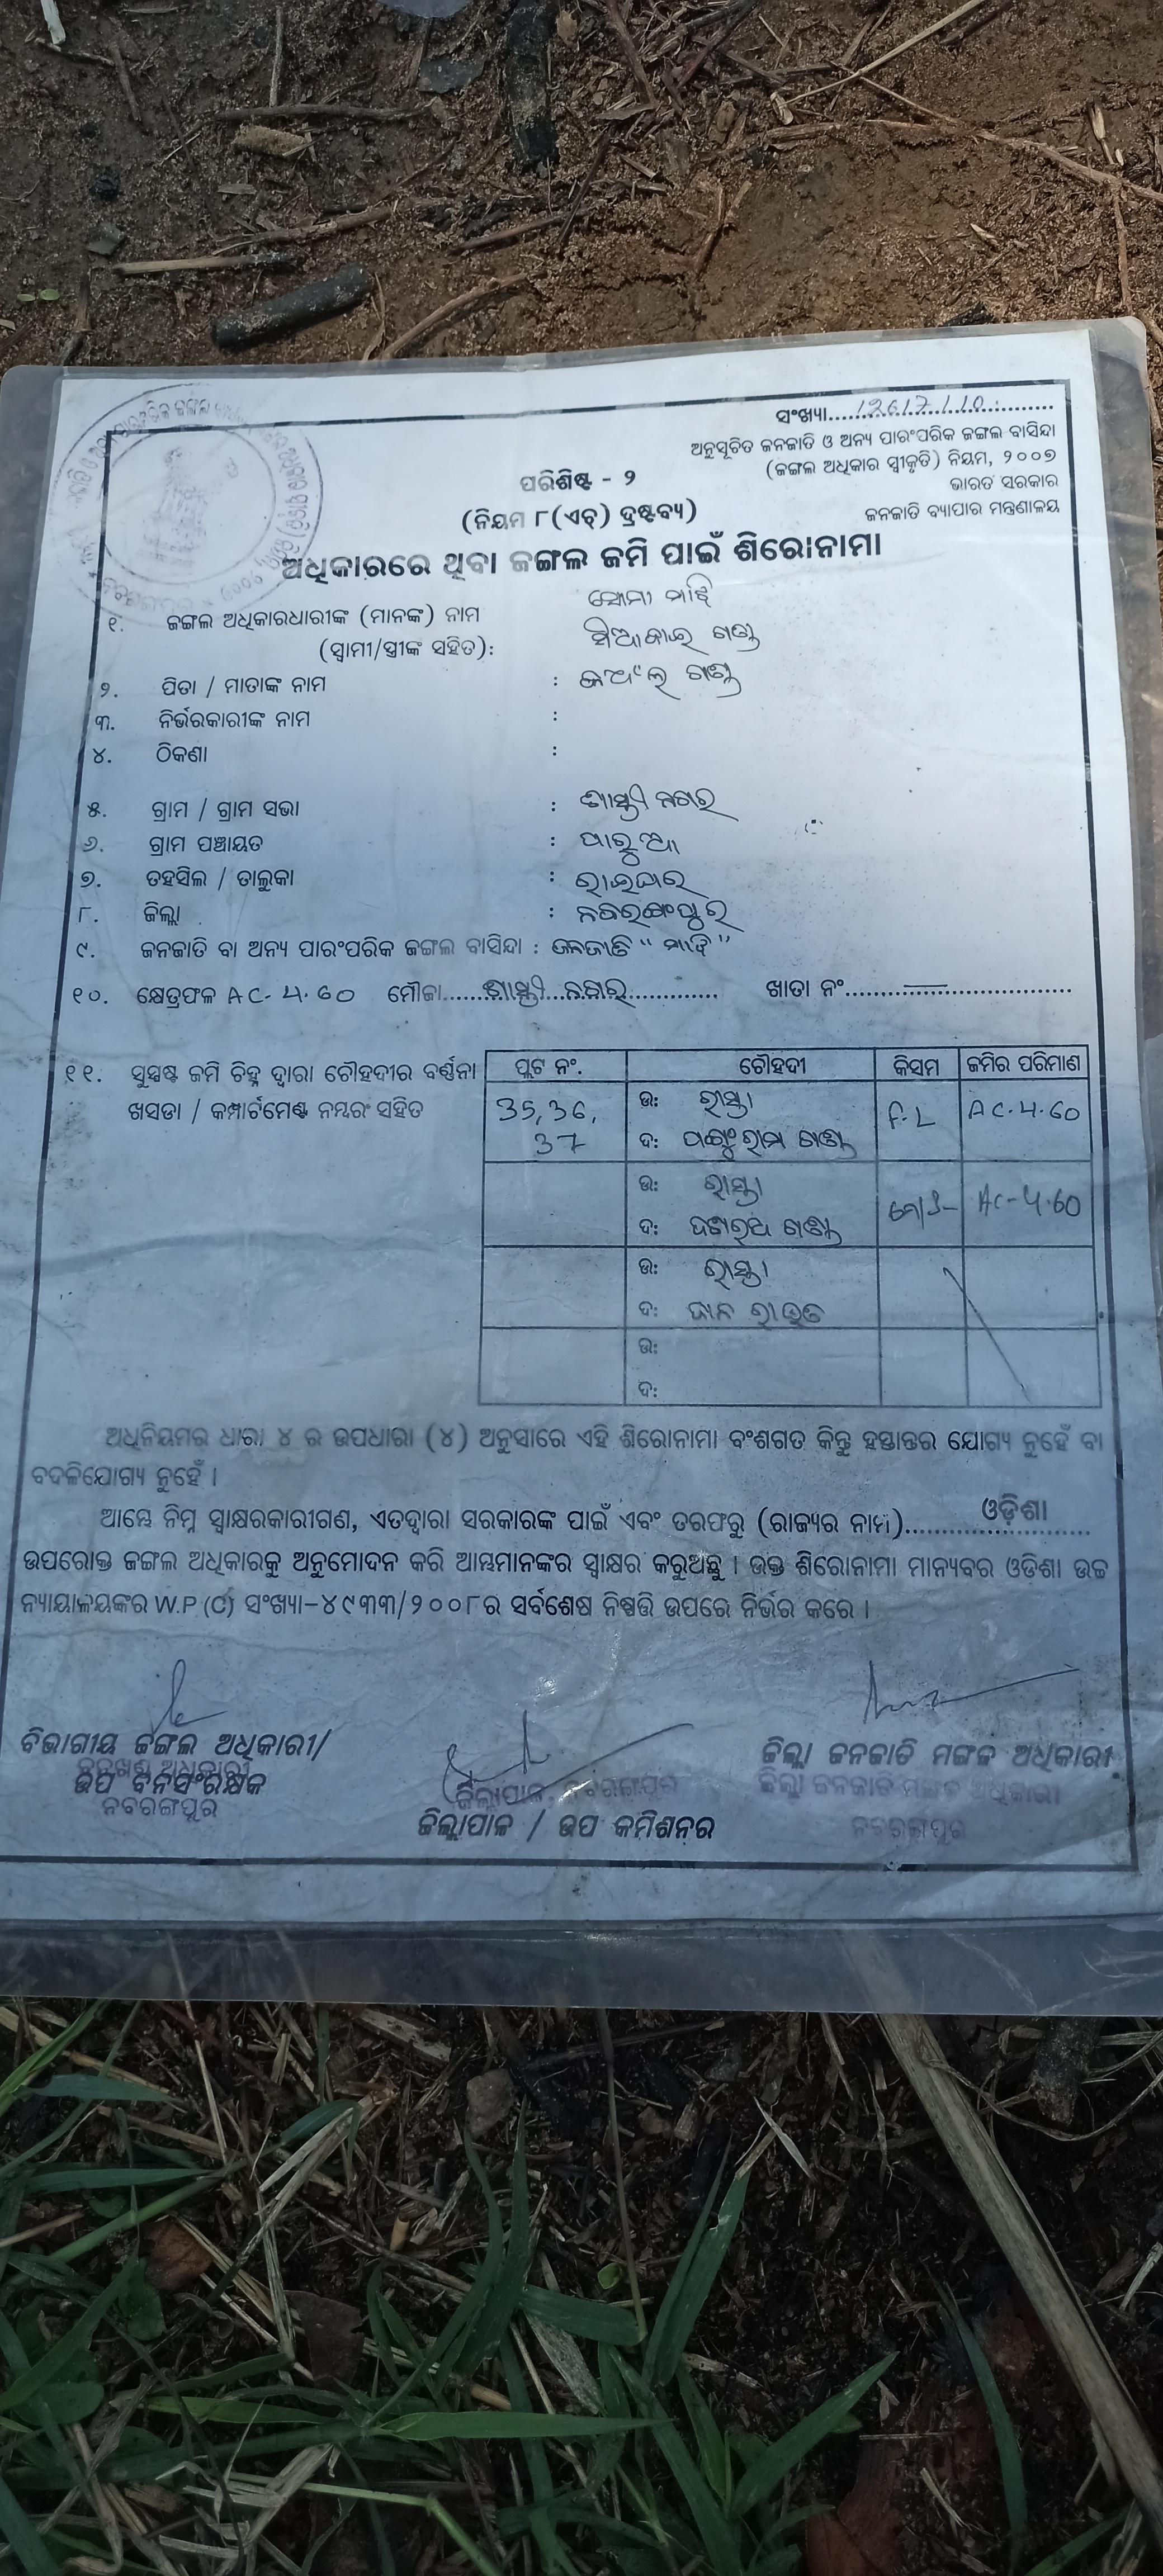 ସଂଖ୍ୟା.....12617/10.....
ଅନୁସୂଚିତ ଜନଜାତି ଓ ଅନ୍ୟ ପାରଂପରିକ ଜଙ୍ଗଲ ବାସିନ୍ଦା
(ଜଙ୍ଗଲ ଅଧିକାର ସ୍ୱୀକୃତି) ନିୟମ, ୨୦୦୭
ଭାରତ ସରକାର
ଜନଜାତି ବ୍ୟାପାର ମନ୍ତ୍ରଣାଳୟ
ପରିଶିଷ୍ଟ - ୨
(ନିୟମ ୮(ଏଚ୍) ଦ୍ରଷ୍ଟବ୍ୟ)
ଅଧିକାରରେ ଥିବା ଜଙ୍ଗଲ ଜମି ପାଇଁ ଶିରୋନାମା
୧. ଜଙ୍ଗଲ ଅଧିକାରଧାରୀଙ୍କ (ମାନଙ୍କ) ନାମ ସୋମା ମାଝି
(ସ୍ୱାମୀ/ସ୍ତ୍ରୀଙ୍କ ସହିତ): ଗଣ୍ଡ
୨. ପିତା / ମାତାଙ୍କ ନାମ : ଗଣ୍ଡ
୩. ନିର୍ଭରକାରୀଙ୍କ ନାମ :
୪. ଠିକଣା :
୫. ଗ୍ରାମ / ଗ୍ରାମ ସଭା : ଶାସ୍ତ୍ରୀ ନଗର
୬. ଗ୍ରାମ ପଞ୍ଚାୟତ : ପାରୁଆ
୭. ତହସିଲ / ତାଲୁକା : ରାଇଘର
୮. ଜିଲ୍ଲା : ନବରଙ୍ଗପୁର
୯. ଜନଜାତି ବା ଅନ୍ୟ ପାରଂପରିକ ଜଙ୍ଗଲ ବାସିନ୍ଦା : ଜନଜାତି " ମାଝି "
୧୦. କ୍ଷେତ୍ରଫଳ AC. 4.60 ମୌଜା.....ଶାସ୍ତ୍ରୀ ନଗର..... ଖାତା ନଂ..........
୧୧. ସୁସ୍ପଷ୍ଟ ଜମି ଚିହ୍ନ ଦ୍ୱାରା ଚୌହଦୀର ବର୍ଣ୍ଣନା ପ୍ଲଟ ନଂ. ଚୌହଦୀ କିସମ ଜମିର ପରିମାଣ
ଖସଡା / କମ୍ପାର୍ଟମେଣ୍ଟ ନମ୍ବରଂ ସହିତ 35, 36, ଉ: ରାସ୍ତା F.L AC.4.60
37 ଦ: ରାମ ଗଣ୍ଡ
ଉ: ରାସ୍ତା AC-4.60
ଦ: ଦଶରଥ ଗଣ୍ଡ
ଉ: ରାସ୍ତା
ଦ: ରାଉତ
ଉ:
ଦ:
ଅଧିନିୟମର ଧାରା ୪ ର ଉପଧାରା (୪) ଅନୁସାରେ ଏହି ଶିରୋନାମା ବଂଶଗତ କିନ୍ତୁ ହସ୍ତାନ୍ତର ଯୋଗ୍ୟ ନୁହେଁ ବା
ବଦଳିଯୋଗ୍ୟ ନୁହେଁ ।
ଆମ୍ଭେ ନିମ୍ନ ସ୍ୱାକ୍ଷରକାରୀଗଣ, ଏତଦ୍ୱାରା ସରକାରଙ୍କ ପାଇଁ ଏବଂ ତରଫରୁ (ରାଜ୍ୟର ନାମ).....ଓଡ଼ିଶା.....
ଉପରୋକ୍ତ ଜଙ୍ଗଲ ଅଧିକାରକୁ ଅନୁମୋଦନ କରି ଆମ୍ଭମାନଙ୍କର ସ୍ୱାକ୍ଷର କରୁଅଛୁ । ଉକ୍ତ ଶିରୋନାମା ମାନ୍ୟବର ଓଡିଶା ଉଚ୍ଚ
ନ୍ୟାୟାଳୟଙ୍କର W.P.(C) ସଂଖ୍ୟା–୪୯୩୩/୨୦୦୮ର ସର୍ବଶେଷ ନିଷ୍ପତ୍ତି ଉପରେ ନିର୍ଭର କରେ ।
ବିଭାଗୀୟ ଜଙ୍ଗଲ ଅଧିକାରୀ/
ବନଖଣ୍ଡ ଅଧିକାରୀ
ଉପ ବନସଂରକ୍ଷକ
ନବରଙ୍ଗପୁର
ଜିଲ୍ଲାପାଳ, ନବରଙ୍ଗପୁର
ଜିଲ୍ଲାପାଳ / ଉପ କମିଶନର
ଜିଲ୍ଲା ଜନଜାତି ମଙ୍ଗଳ ଅଧିକାରୀ
ଜିଲ୍ଲା ଜନଜାତି ମଙ୍ଗଳ ଅଧିକାରୀ
ନବରଙ୍ଗପୁର